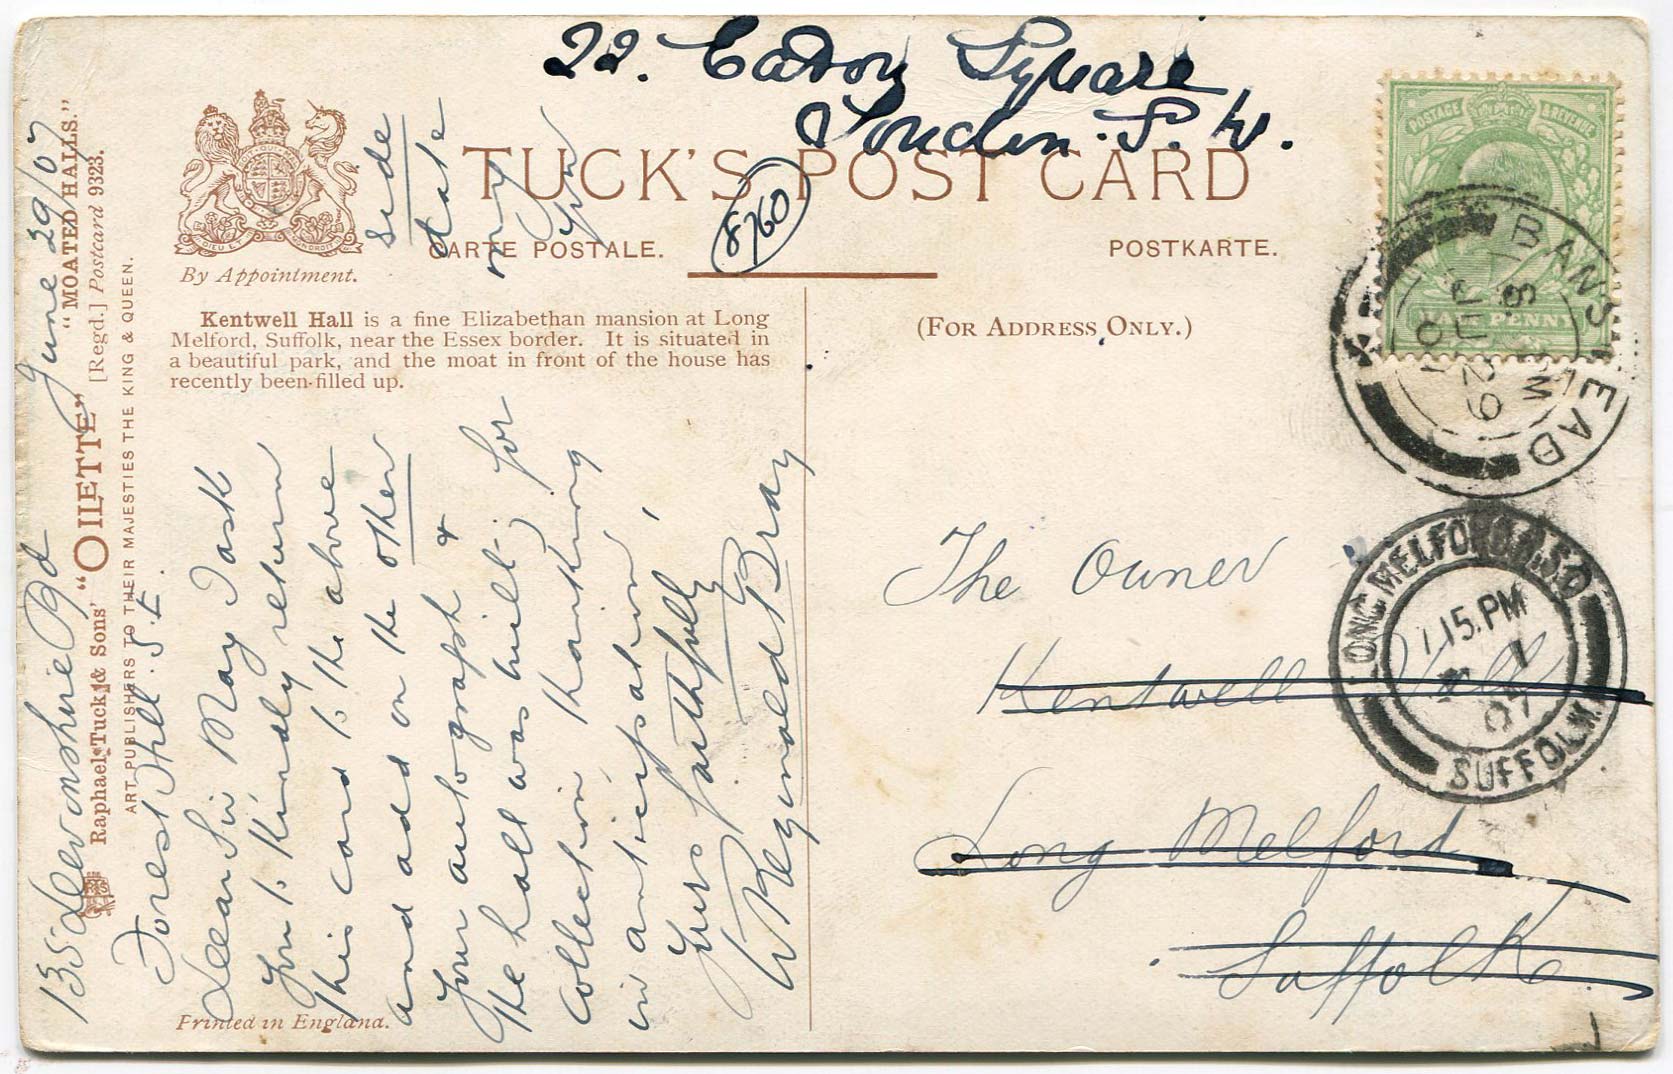 22. Eaton Square
London. S. W.
TUCK'S POST CARD
CARTE POSTALE.
POSTKARTE.
8760
By Appointment.
(FOR ADDRESS ONLY.)
Kentwell Hall is a fine Elizabethan mansion at Long
Melford, Suffolk, near the Essex border. It is situated in
a beautiful park, and the moat in front of the house has
recently been filled up.
"MOATED HALLS."
[Regd.] Postcard 9323.
Raphael Tuck & Sons' "OILETTE"
ART PUBLISHERS TO THEIR MAJESTIES THE KING & QUEEN.
Printed in England.
135 Devonshire Rd June 29/07
Forest Hill. S. E.
Dear Sir May I ask
you to kindly return
this card to the above
and add on the other side
your autograph & date
the hall was built, for my
collection, thanking you
in anticipation,
Yours faithfully
W Reginald Bray
The Owner
Kentwell Hall
Long Melford
Suffolk
POSTAGE & REVENUE
HALF PENNY
BANSTEAD
LONG MELFORD R.S.O
1.15. PM
07
SUFFOLK